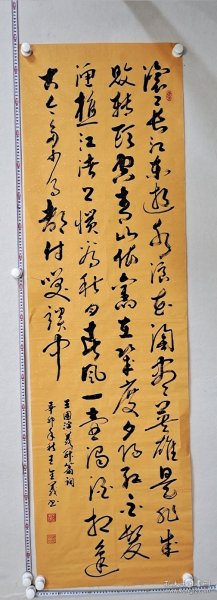 滚々长江东逝水浪花淘尽英雄是非成
败转头空青山依舊在几度夕阳红白髮
渔樵江渚上惯看秋月春风一壶浊酒喜相逢
古今多少事都付笑谈中
三國演义开篇词
辛卯年秋